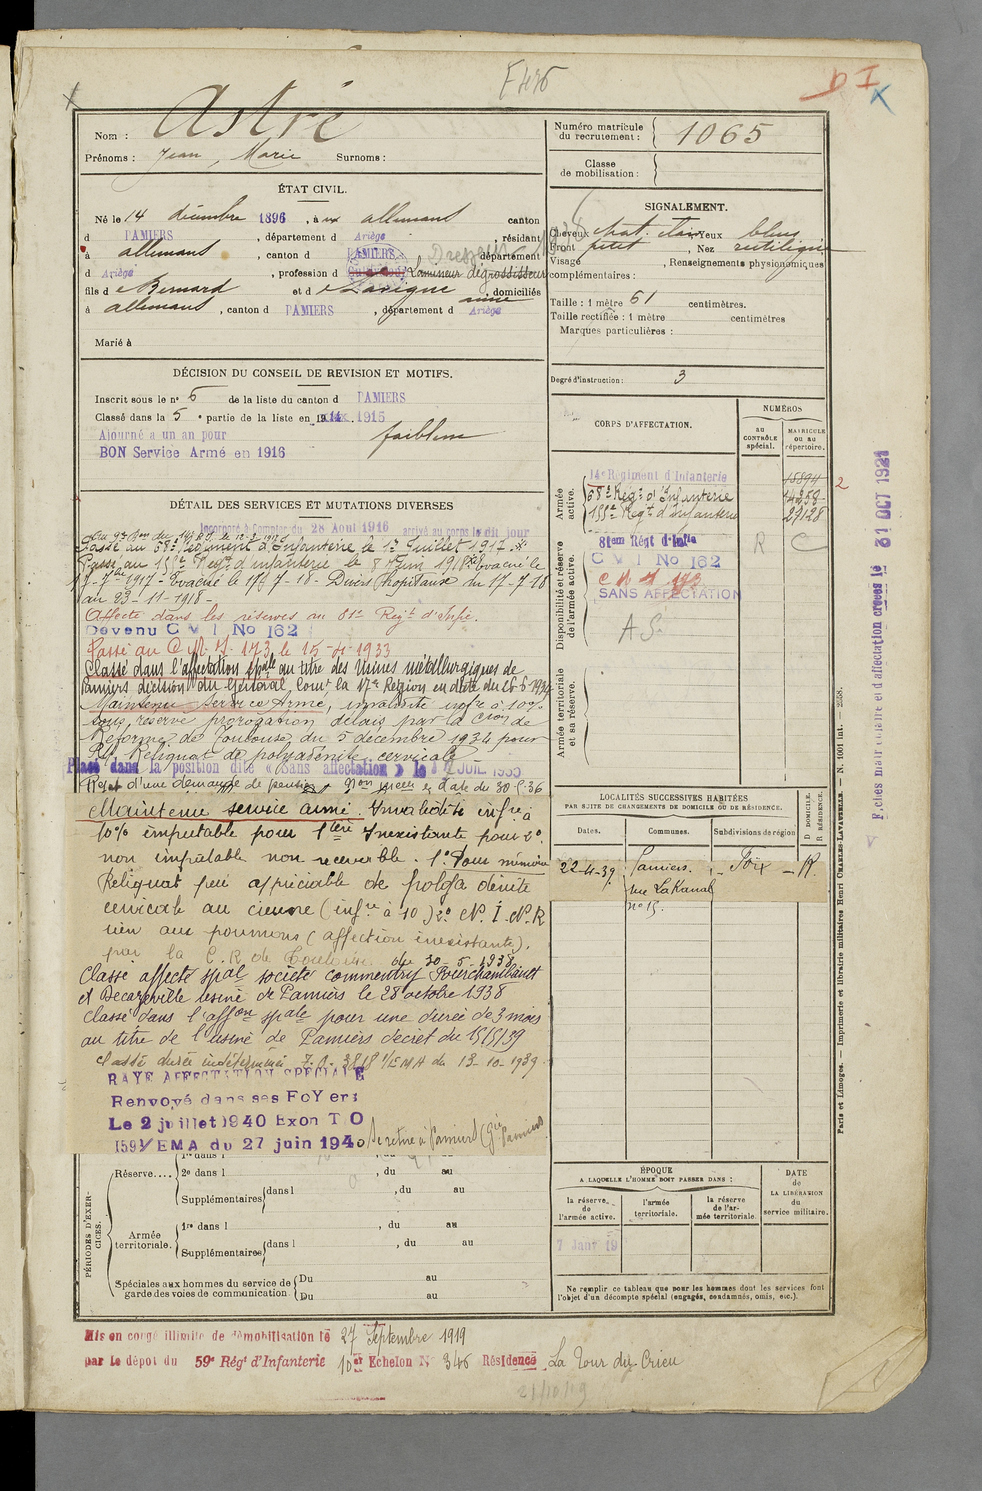 F 426
D I
Nom : Astré
Prénoms : Jean, Marie Surnoms :
Numéro matricule du recrutement : 1065
Classe de mobilisation :
ÉTAT CIVIL.
Né le 14 décembre 1896, à allemans canton
d PAMIERS, département d Ariège, résidant
à allemans, canton d PAMIERS département
d Ariège, profession d Lamineur dégrossisseur
fils d e Bernard et d e Lavigne anne, domiciliés
à allemans, canton d PAMIERS, département d Ariège
Marié à
SIGNALEMENT.
Cheveux chat. clair Yeux bleus
Front petit, Nez rectiligne
Visage, Renseignements physionomiques
complémentaires :
Taille : 1 mètre 61 centimètres.
Taille rectifiée : 1 mètre centimètres
Marques particulières :
Degré d'instruction : 3
DÉCISION DU CONSEIL DE REVISION ET MOTIFS.
Inscrit sous le n° 6 de la liste du canton d PAMIERS
Classé dans la 5e partie de la liste en 1915
Ajourné a un an pour faiblesse
BON Service Armé en 1916
DÉTAIL DES SERVICES ET MUTATIONS DIVERSES
Incorporé à Compter du 28 Aout 1916 arrivé au corps le dit jour
Passé au 58e Régiment d'Infanterie le 1er Juillet 1917
Passé au 155e Regt d'infanterie le 8 Juin 1918 Evacué le
17-7-1917 - Evacué le 17-7-18 - Divers Hopitaux du 17-7-18
au 23-11-1918 -
Affecté dans les réserves au 81e Regt d'Infie.
Devenu C M I No 162
Passé au C M I 173 le 15-4-1933
Classé dans l'affectation spale au titre des Usines métallurgiques de
Pamiers décision du Général Comt la 17e Région en date du 26-6-1934
Maintenu service Armé, invalidité infre à 10%
sous réserve prorogation délais par la Cion de
Réforme de Toulouse du 5 décembre 1934 pour
Reliquat de polyadénite cervicale -
Placé dans la position dite « Sans affectation » le JUIL 1935
Rejet d'une demande de pension Don en date du 30-5-36
Maintenu service armé. Invalidité infre à
10% imputable pour 1ère Inexistante pour 2°
non imputable non recevable. 1° Pour mémoire
Reliquat peu appréciable de polyadénite
cervicale au cieuvre (infre à 10) 2° N. I. N. R
rien aux poumons (affection inexistante).
par la C. R de Toulouse. de 30-5-1938
Classé affecté spal société commentry Fourchambault
et Decazeville usine de Pamiers le 28 octobre 1938
Classé dans l'affon spale pour une durée de 3 mois
au titre de l'usine de Pamiers decret du 15/5/39
Classé durée indéterminée I. O. 3818 1/EMA du 13-10-1939.
RAYE AFFECTATION SPECIALE
Renvoyé dans ses FoYers
Le 2 juillet 1940 Exon T O
1591/EMA du 27 juin 1940 Se retire à Pamiers (Gie Pamiers
CORPS D'AFFECTATION.
NUMÉROS
au CONTRÔLE spécial.
MATRICULE ou au répertoire.
Armée active.
14e Régiment d'Infanterie 15894
58e Régt d'Infanterie 14258
155e Regt d'Infanterie 27128
2
Disponibilité et réserve de l'armée active.
81eme Régt d'Infie R C
C M I No 162
C M I 173
SANS AFFECTATION
A S.
Armée territoriale et sa réserve.
LOCALITÉS SUCCESSIVES HABITÉES
PAR SUITE DE CHANGEMENTS DE DOMICILE OU DE RÉSIDENCE.
Dates. Communes. Subdivisions de région D DOMICILE. R RÉSIDENCE.
22-4-39. Pamiers. - Foix - R.
rue Lakanal
n° 15.
PÉRIODES D'EXERCICES.
1re dans l , du au
Réserve.... 2e dans l , du au
Supplémentaires dans l , du au
Armée territoriale. 1re dans l , du au
Supplémentaires dans l , du au
Spéciales aux hommes du service de garde des voies de communication. Du au
Du au
ÉPOQUE
A LAQUELLE L'HOMME DOIT PASSER DANS :
la réserve de l'armée active.
l'armée territoriale.
la réserve de l'armée territoriale.
DATE DE LA LIBÉRATION du service militaire.
7 Janv 19
Ne remplir ce tableau que pour les hommes dont les services font
l'objet d'un décompte spécial (engagés, condamnés, omis, etc.).
Mis en congé illimité de démobilisation le 27 Septembre 1919
par le dépot du 59e Régt d'Infanterie 10er Echelon N° 346 Résidence La Tour du Crieu
21/10/19
31 OCT 1921
Paris et Limoges. — Imprimerie et librairie militaires Henri CHARLES-LAVAUZELLE. — N. 1001 int. — 258.